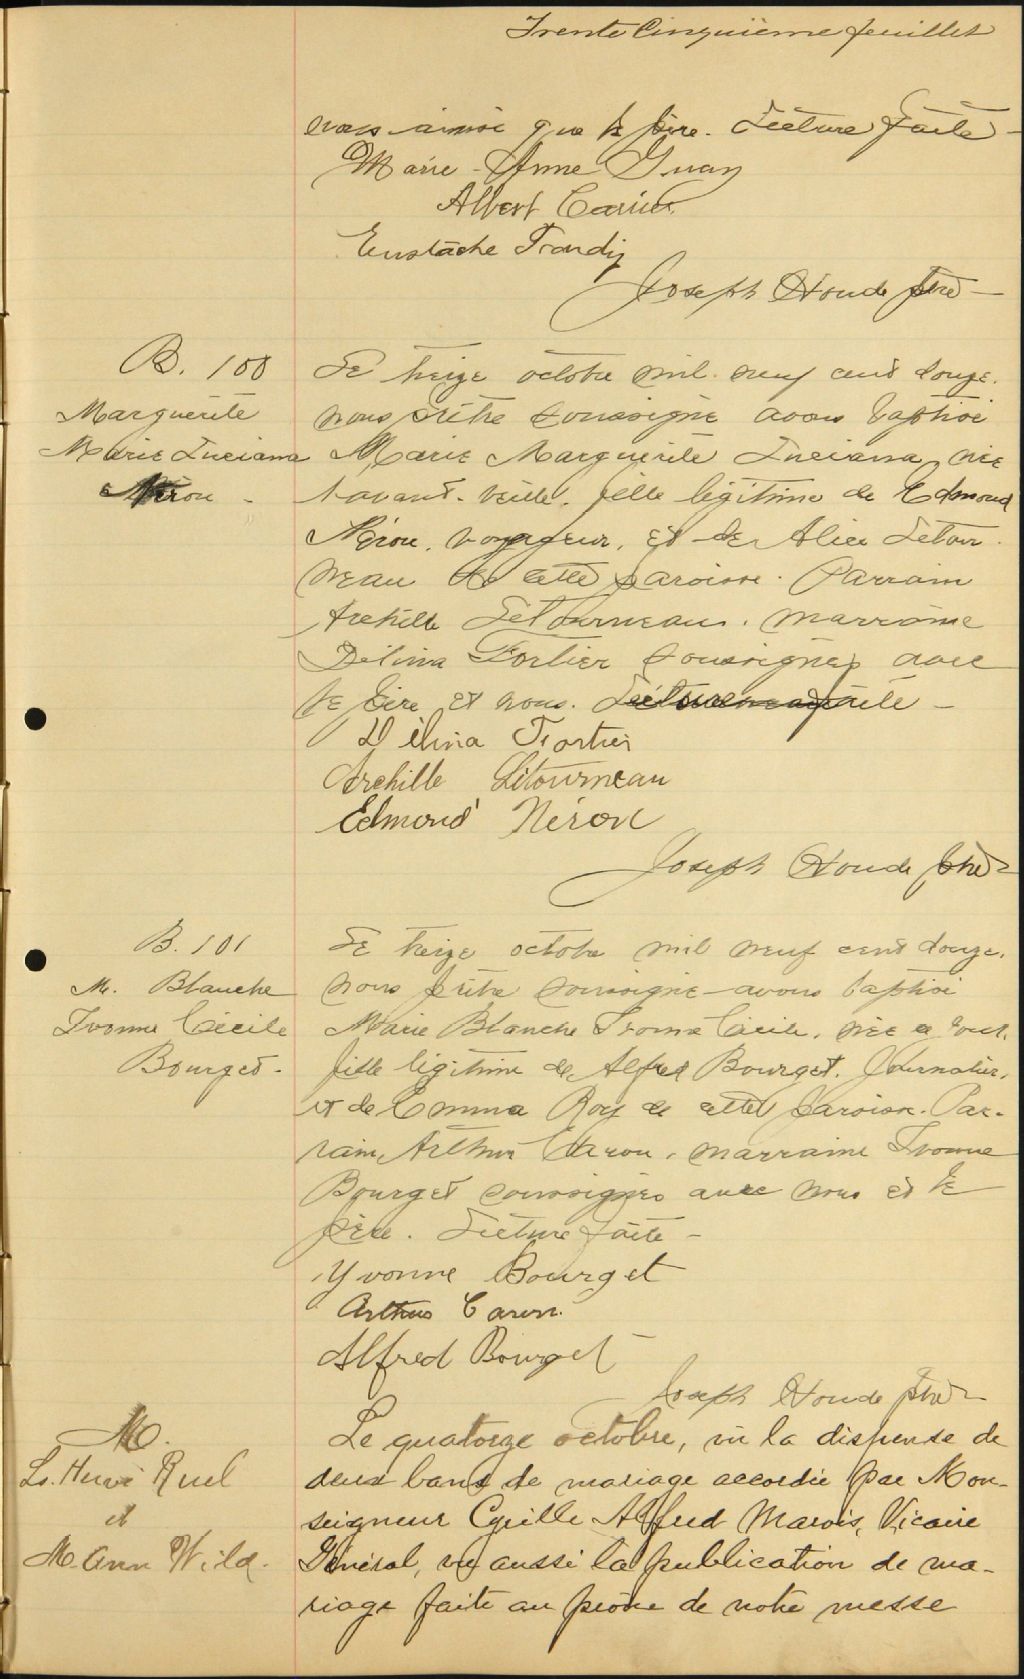 Trente Cinquième feuillet
nous ainsi que le père. Lecture faite -
Marie-Anne Guay
Albert Carrier
Eustache Trandy
Joseph Houde ptre -
B. 100
Marguerite
Marie Luciana
Néron -
Le treize octobre mil neuf cent douze.
nous prêtre soussigné avons baptisé
Marie Marguerite Luciana, née
l'avant-veille, fille légitime de Edmond
Néron, voyageur, et de Alice Létour-
neau de cette paroisse. Parrain
Archille Létourneau. marraine
Délina Fortier soussignés avec
le père et nous. Lecture faite -
Délina Fortier
Archille Létourneau
Edmond Néron
Joseph Houde ptre
B. 101
M. Blanche
Yvonne Cécile
Bourget -
Le treize octobre mil neuf cent douze.
nous prêtre soussigné avons baptisé
Marie Blanche Yvonne Cécile, née ce jour,
fille légitime de Alfred Bourget, Journalier,
et de Emma Roy de cette paroisse. Par-
rain Arthur Caron, marraine Yvonne
Bourget soussignés avec nous et le
père. Lecture faite -
Yvonne Bourget
Arthur Caron
Alfred Bourget
Joseph Houde ptre
M.
Ls. Hervé Ruel
et
M. Ann Wild.
Le quatorze octobre, vu la dispense de
deux bans de mariage accordée par Mon-
seigneur Cyrille Alfred Marois, Vicaire
Général, vu aussi la publication de ma-
riage faite au prône de notre messe